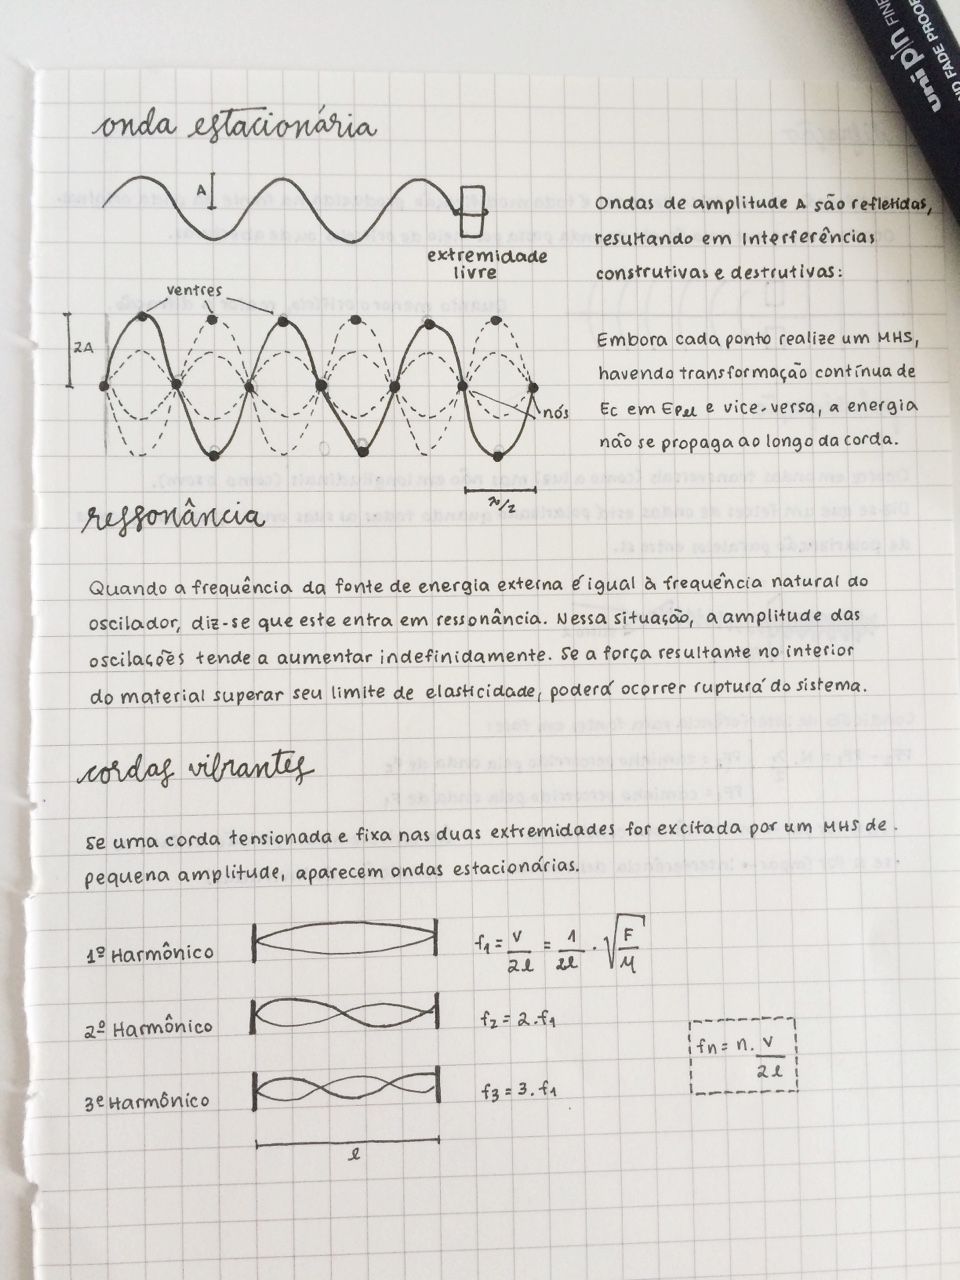 uni pin FINE
ND FADE PROOF
onda estacionária
A
extremidade
livre
Ondas de amplitude A são refletidas,
resultando em Interferências
construtivas e destrutivas:
ventres
2A
nós
λ/2
Embora cada ponto realize um MHS,
havendo transformação contínua de
Ec em Epel e vice-versa, a energia
não se propaga ao longo da corda.
ressonância
Quando a frequência da fonte de energia externa é igual à frequência natural do
oscilador, diz-se que este entra em ressonância. Nessa situação, a amplitude das
oscilações tende a aumentar indefinidamente. Se a força resultante no interior
do material superar seu limite de elasticidade, poderá ocorrer ruptura do sistema.
cordas vibrantes
Se uma corda tensionada e fixa nas duas extremidades for excitada por um MHS de
pequena amplitude, aparecem ondas estacionárias.
1º Harmônico f1 = V/2l = 1/2l . √F/μ
2º Harmônico f2 = 2.f1
fn = n. V/2l
3º Harmônico f3 = 3.f1
l